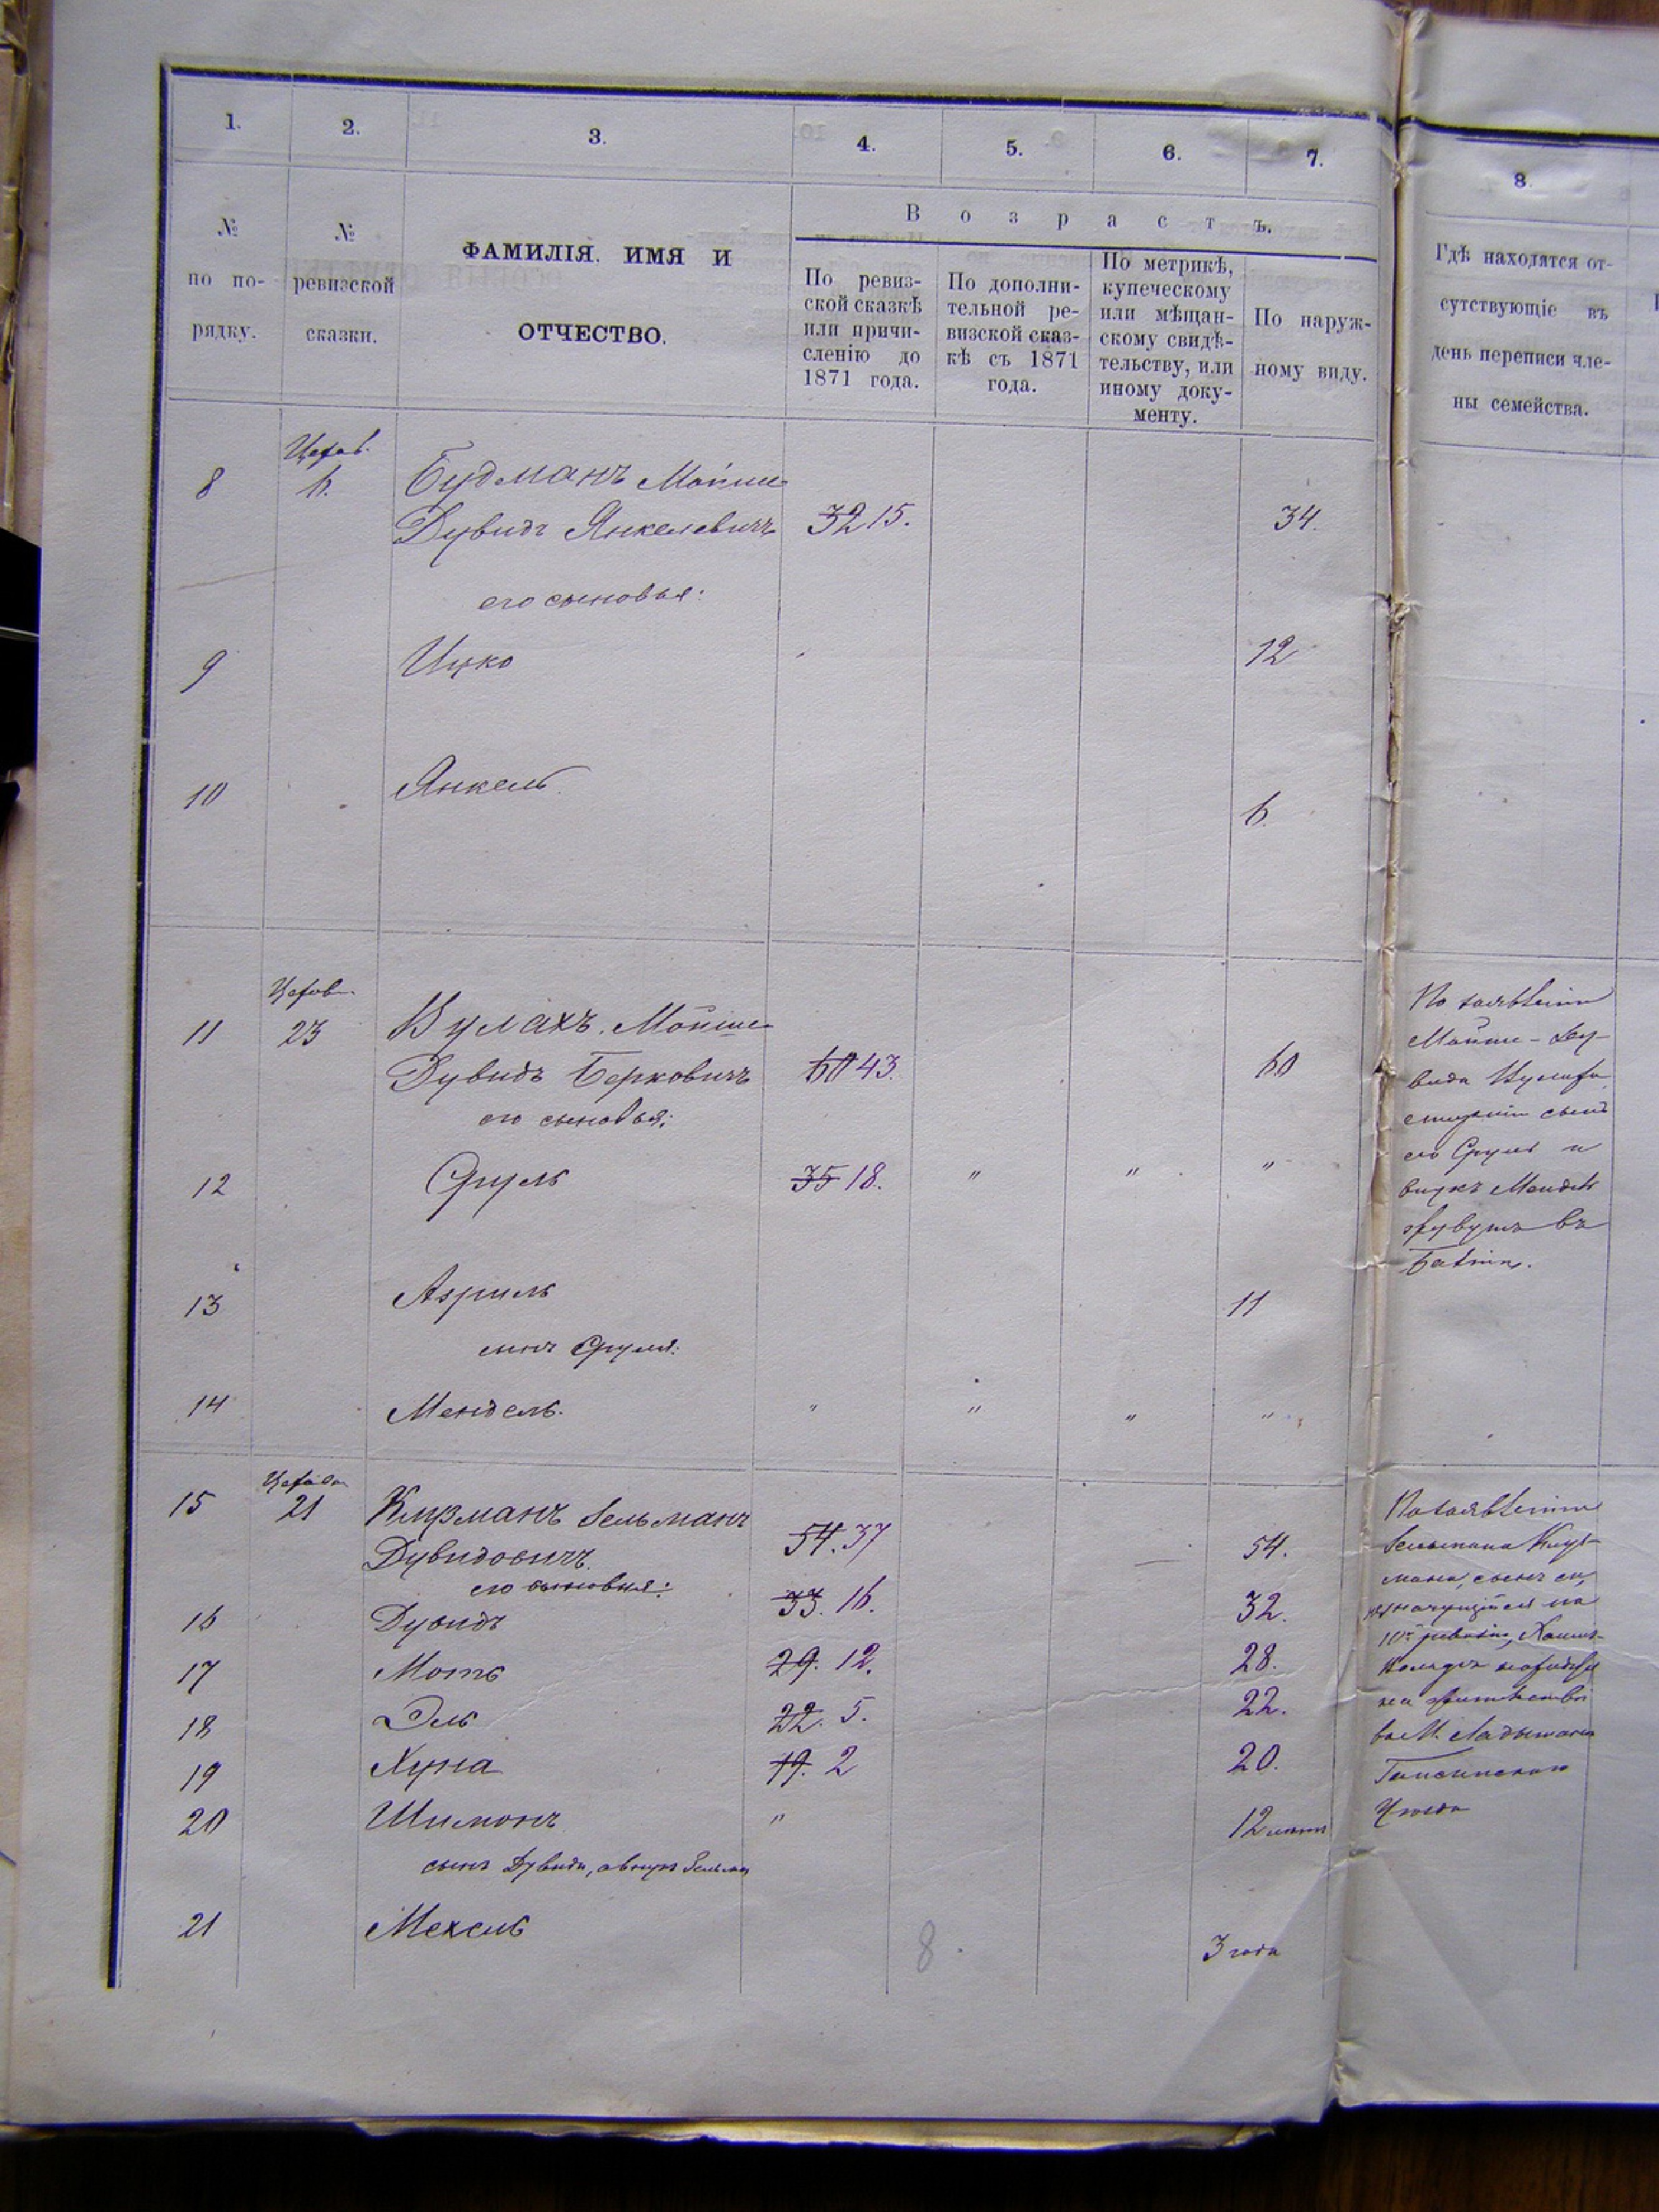 1.
2.
3.
4.
5.
6.
7.
8.
№
по по-
рядку.
№
ревизской
сказки.
ФАМИЛІЯ. ИМЯ И
ОТЧЕСТВО.
Возрастъ.
По ревиз-
ской сказкѣ
или причи-
сленію до
1871 года.
По дополни-
тельной ре-
визской сказ-
кѣ съ 1871
года.
По метрикѣ,
купеческому
или мѣщан-
скому свидѣ-
тельству, или
иному доку-
менту.
По наруж-
ному виду.
Гдѣ находятся от-
сутствующіе въ
день переписи чле-
ны семейства.
8 6. Будманъ Мойше
Дувидъ Янкелевичъ 32 15. 34.
его сыновья:
9 Ицко 12
10 Янкель 6.
11 23 Кулахъ. Мойше
Дувидъ Берковичъ 60 43. 60
его сыновья:
12 Сруль 35 18. " " "
13 Азриль 11
сынъ Сруля:
14 Мендель. " " " "
По заявленію
Мойше-Ду-
вида
сынъ
его Сруль и
внукъ Мендель
живутъ въ
15 21 Клузманъ Зельманъ
Дувидовичъ 54. 37 54.
его сыновья:
16 Дувидъ 33. 16. 32.
17 Моть 29. 12. 28.
18 Эль 22. 5. 22.
19 Хуна 19. 2 20.
20 Шимонъ " 12 лѣтъ
сынъ Дувида, а внукъ Зельмана
21 Мехель 3 года
По заявленію
Зельмана Клуз-
мана, сынъ его,
по
10й ревизіи,
на жительствѣ
въ М. Ладыжинѣ
Гайсинскаго
Уѣзда
8.